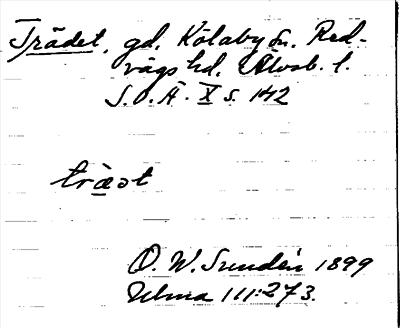 Trädet, gd. Kölaby sn. Red-
vägs hd. Älvsb. l.
S.O.Ä. X s. 142
træ̀t
O. W. Sundén 1899
Ulma 111:273.